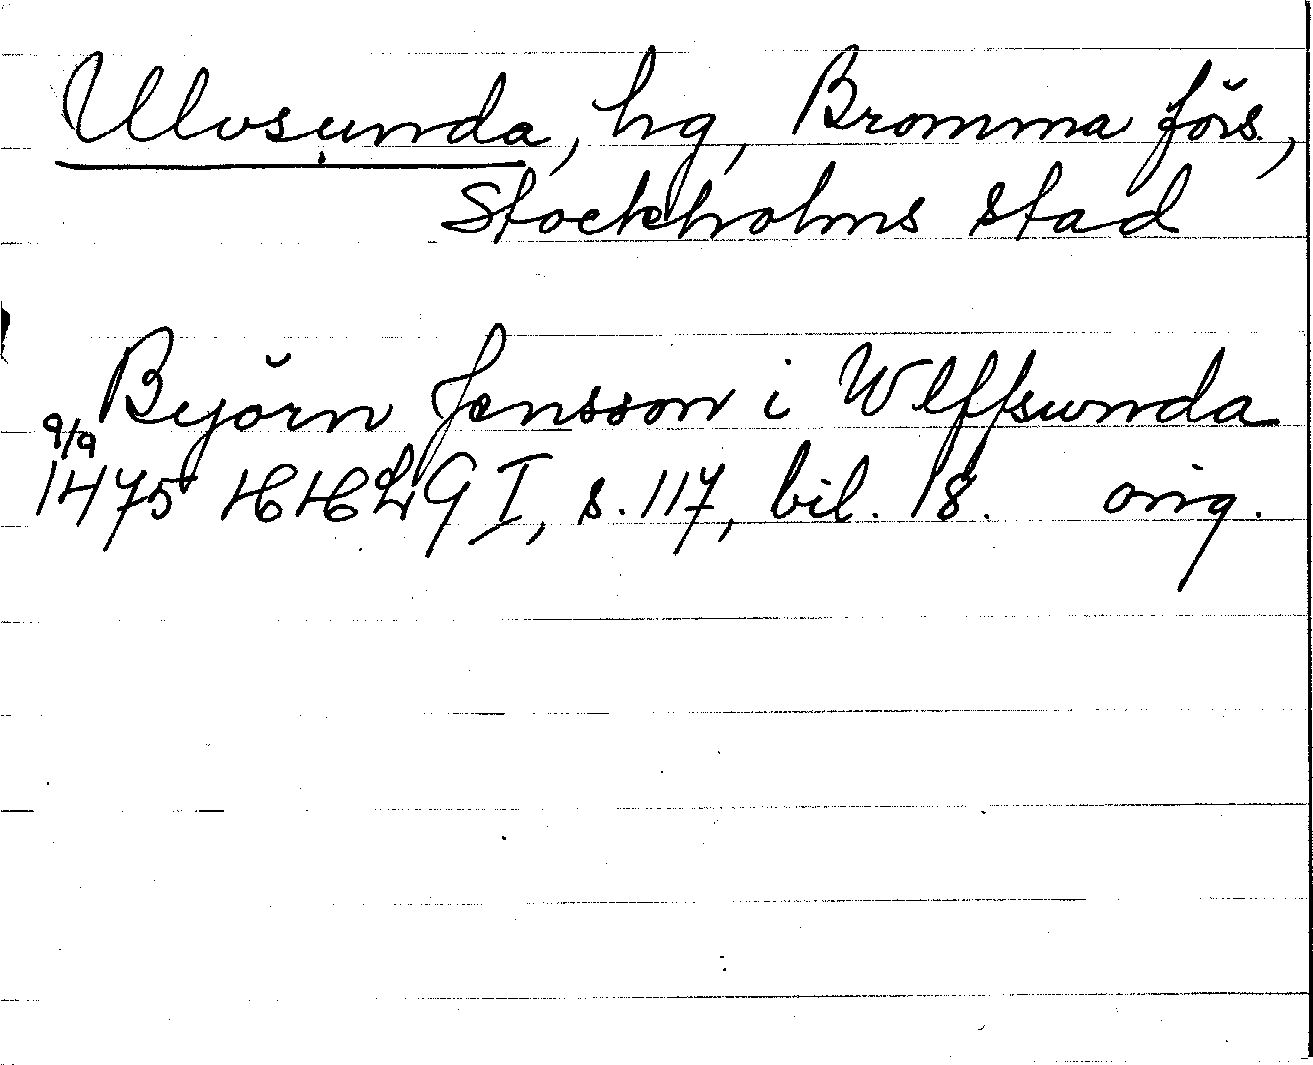 Ulvsunda, hg, Bromma förs.,
Stockholms stad
Byörn Jensson i Wlffsunda
9/9
1475 HHLG I, s. 117, bil. 18. orig.